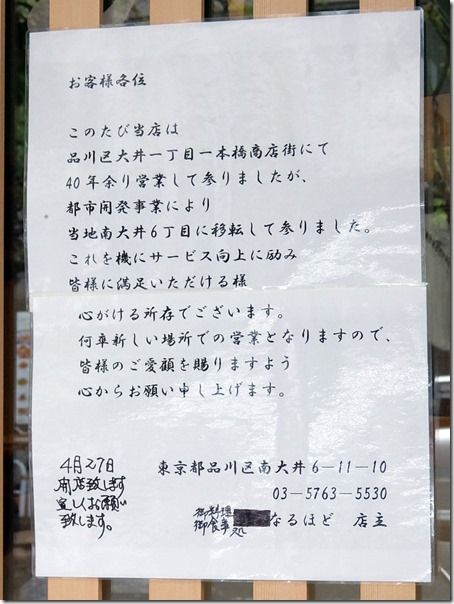 お客様各位
このたび当店は
品川区大井一丁目一本橋商店街にて
40年余り営業して参りましたが、
都市開発事業により
当地南大井6丁目に移転して参りました。
これを機にサービス向上に励み
皆様に満足いただける様
心がける所存でございます。
何卒新しい場所での営業となりますので、
皆様のご愛顧を賜りますよう
心からお願い申し上げます。
4月27日
開店致します
宜しくお願い
致します。
東京都品川区南大井6-11-10
03-5763-5530
御料理
御食事処 なるほど 店主